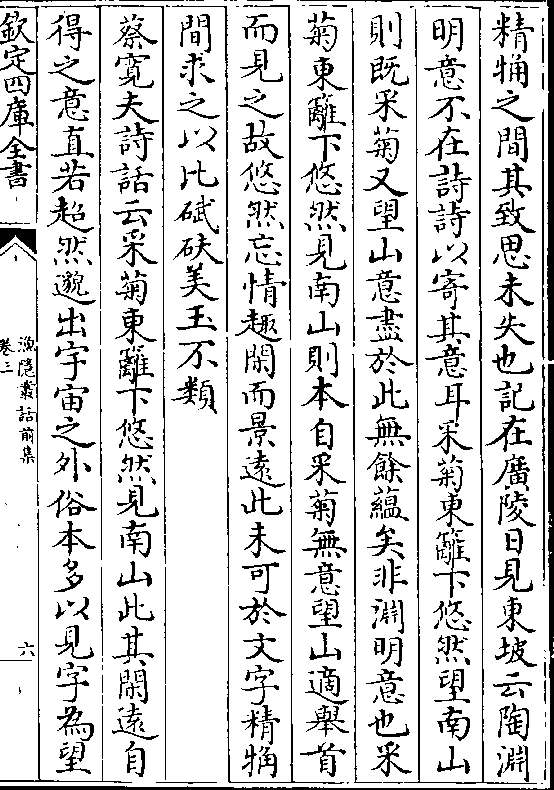 精觕之間其致思未失也記在廣陵日見東坡云陶淵
明意不在詩詩以寄其意耳采菊東籬下悠然望南山
則既采菊又望山意盡於此無餘蘊矣非淵明意也采
菊東籬下悠然見南山則本自采菊無意望山適舉首
而見之故悠然忘情趣閑而景遠此未可於文字精觕
間求之以比碔砆美玉不類
蔡寛夫詩話云采菊東籬下悠然見南山此其閑遠自
得之意直若超然邈出宇宙之外俗本多以見字為望
欽定四庫全書
漁隱叢話前集
卷三
六